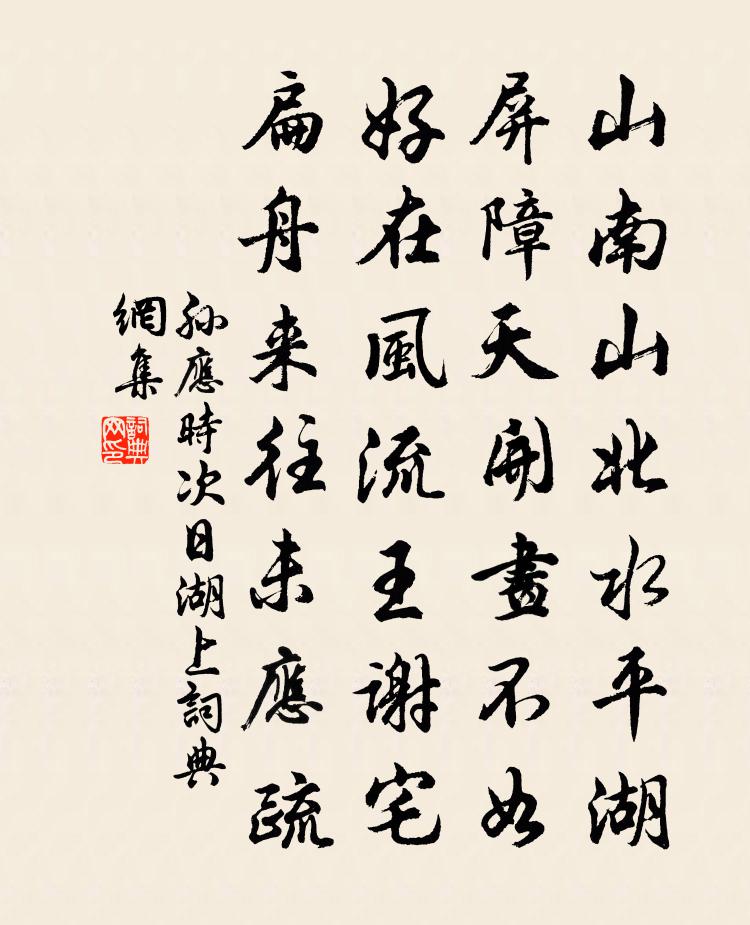 山南山北水平湖
屏障天開畫不如
好在風流王謝宅
扁舟来往未應疏
孫應時次日湖上詞典
網集
詞典
网印